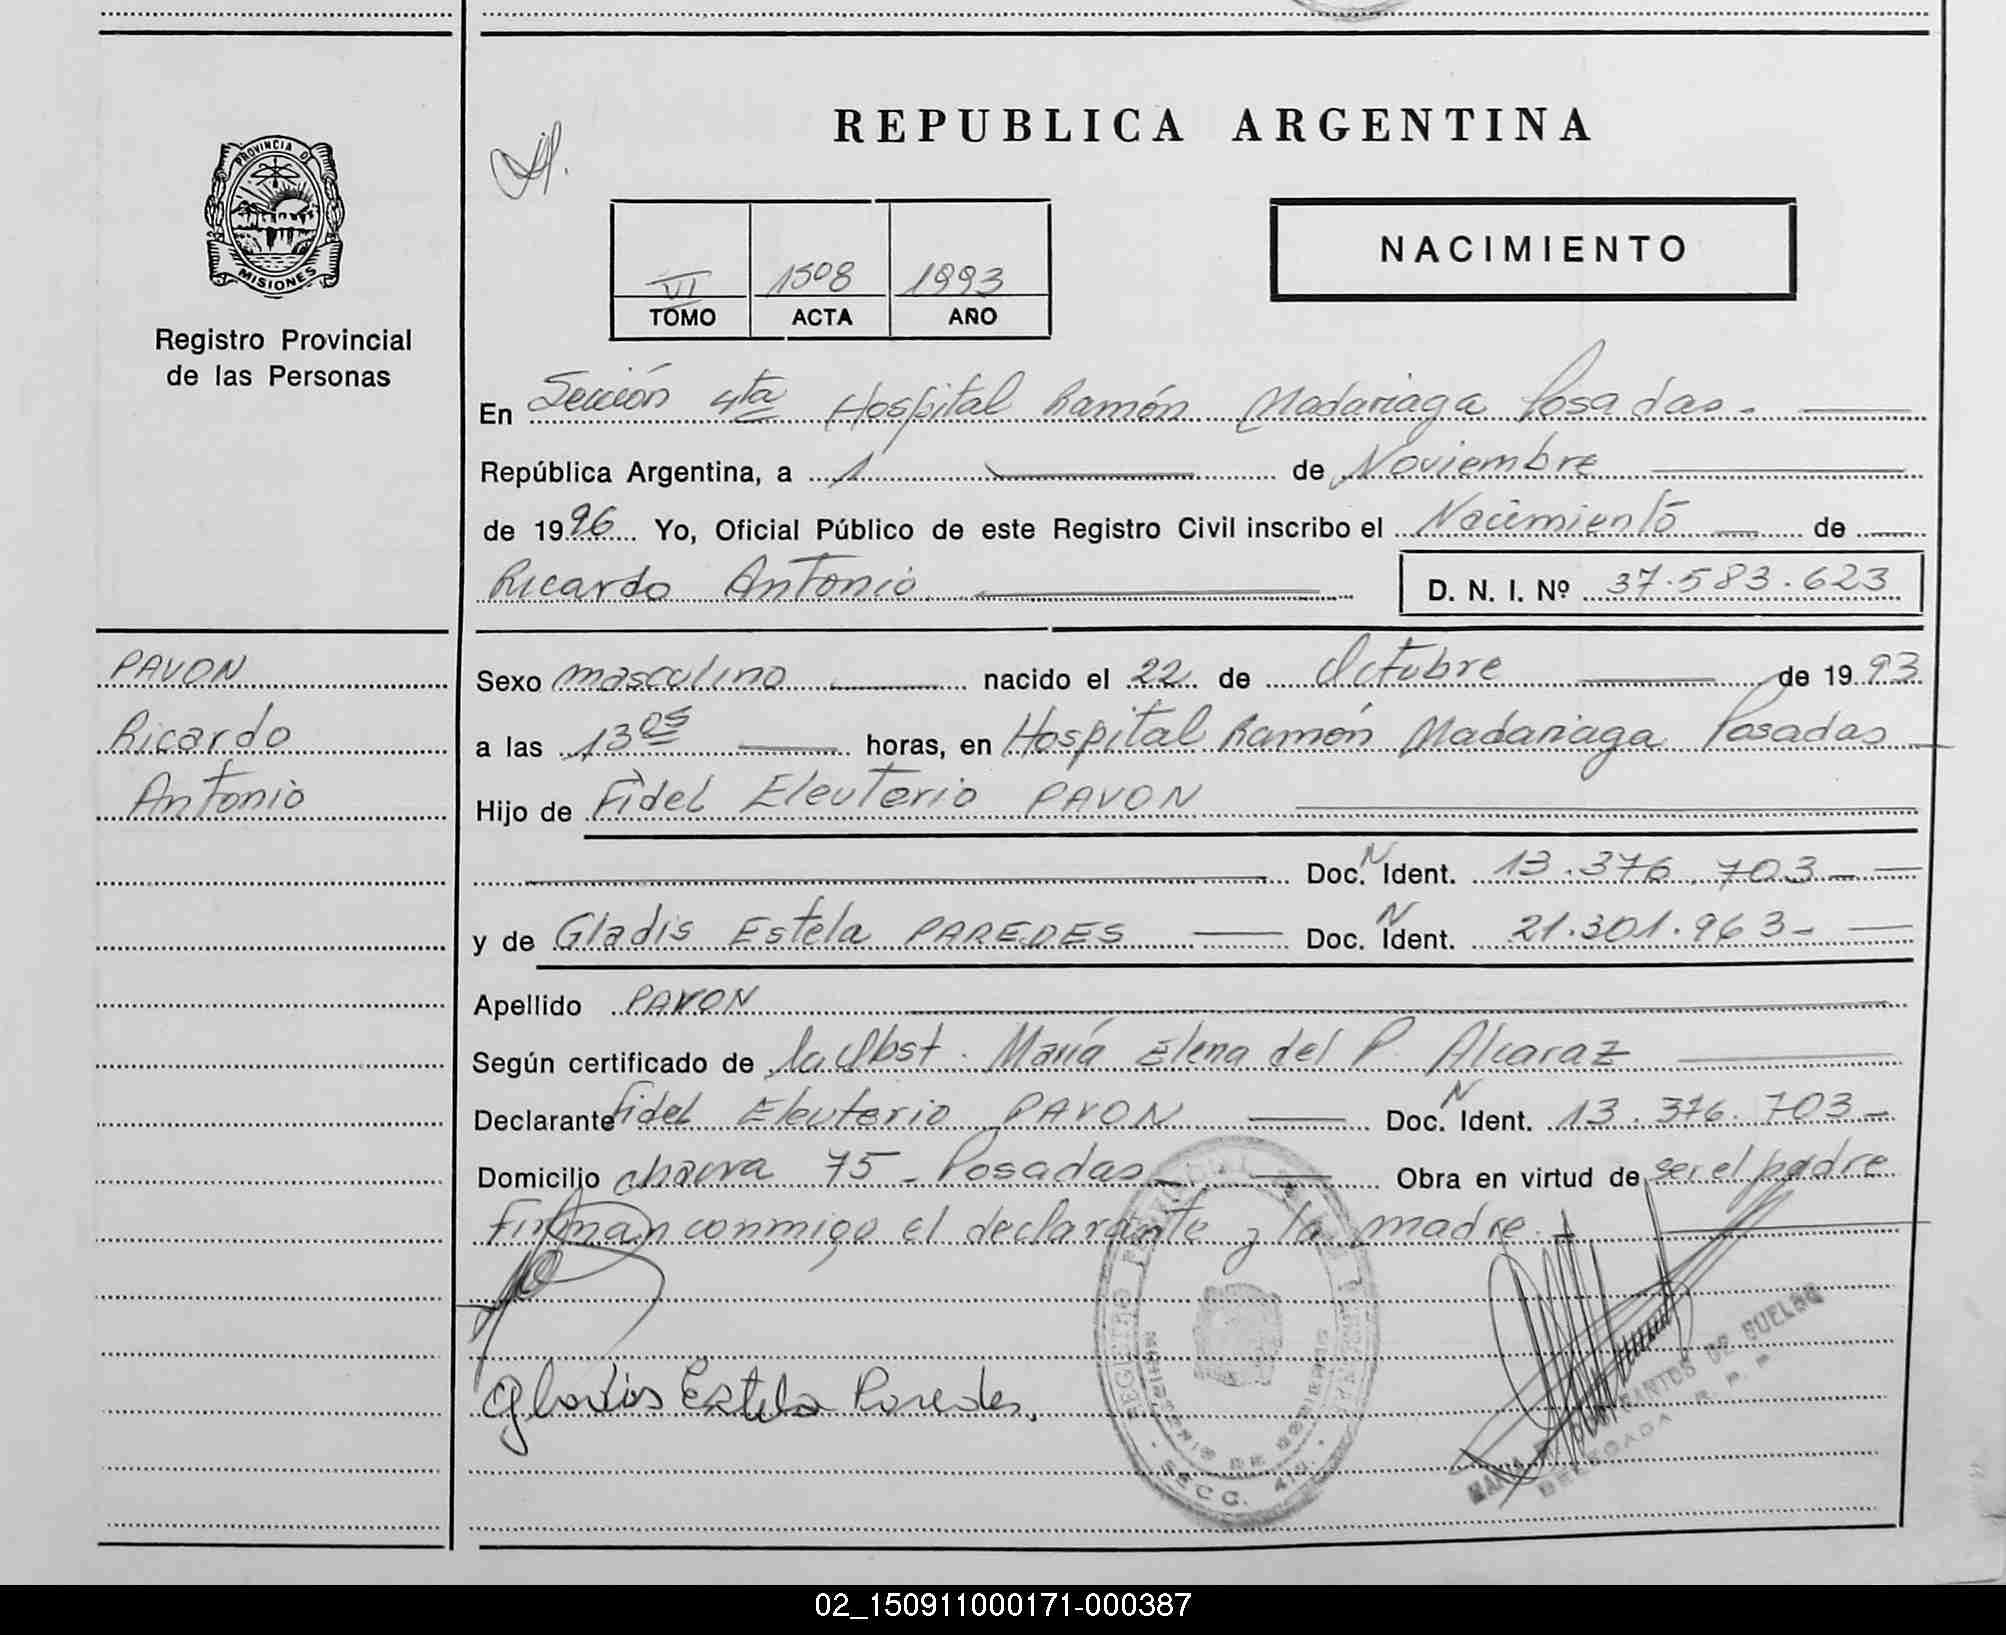 PROVINCIA DE
MISIONES
Registro Provincial
de las Personas
PAVON
Ricardo
Antonio
REPUBLICA ARGENTINA
VI 1508 1993
TOMO ACTA AÑO
NACIMIENTO
En Sección 4ta Hospital Ramón Madariaga Posadas.
República Argentina, a 1 de Noviembre
de 1996 Yo, Oficial Público de este Registro Civil inscribo el Nacimiento de
Ricardo Antonio D. N. I. Nº 37.583.623
Sexo masculino nacido el 22 de Octubre de 1993
a las 13 05 horas, en Hospital Ramón Madariaga Posadas
Hijo de Fidel Eleuterio PAVON
Doc. N Ident. 13.376.703
y de Gladis Estela PAREDES Doc. N Ident. 21.301.963
Apellido PAVON
Según certificado de la Obst. María Elena del P. Alcaraz
Declarante Fidel Eleuterio PAVON Doc. N Ident. 13.376.703
Domicilio chacra 75 - Posadas Obra en virtud de ser el padre
Firman conmigo el declarante y la madre.
Gladis Estela Paredes.
SECC. 4ta.
DELEGADA R. P. P.
02_150911000171-000387